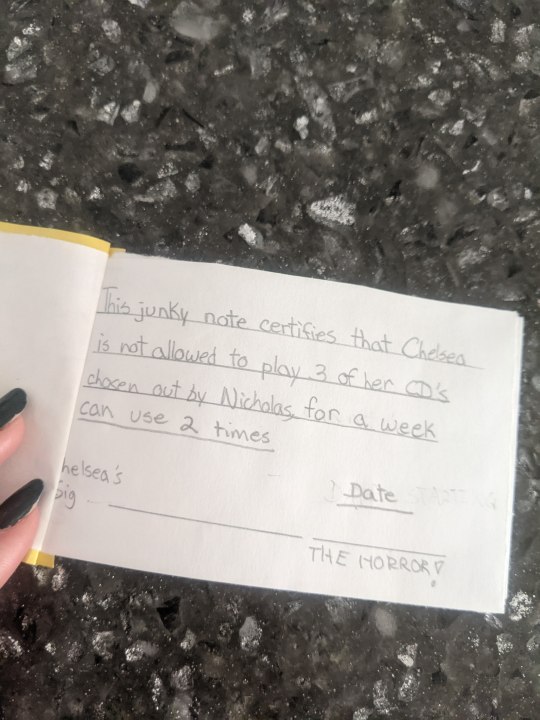 This junky note certifies that Chelsea
is not allowed to play 3 of her CD's
chosen out by Nicholas, for a week
can use 2 times
helsea's
Sig
Date
THE HORROR!